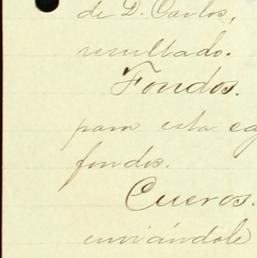 de D. Carlos,
resultado.
Fondos.
para esta eq
fondos.
Cueros.
enviándole